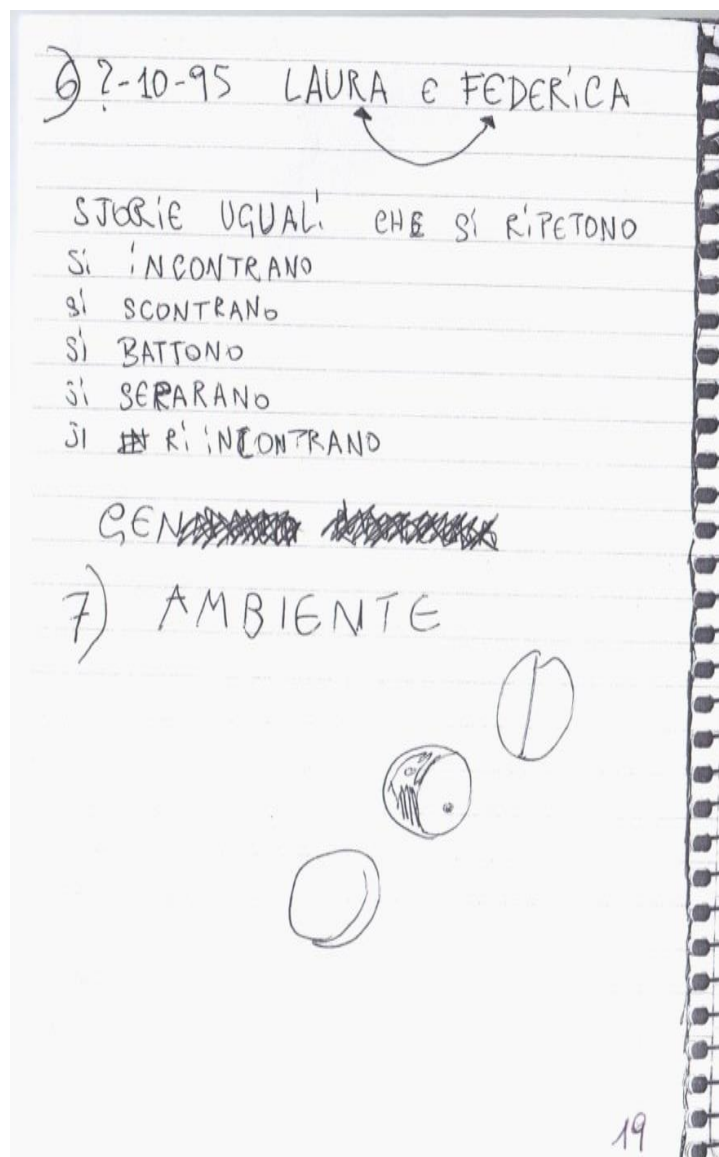 6) ?-10-95 LAURA E FEDERICA
STORIE UGUALI CHE SI RIPETONO
SI INCONTRANO
SI SCONTRANO
SI BATTONO
SI SEPARANO
SI RIINCONTRANO
7) AMBIENTE
19